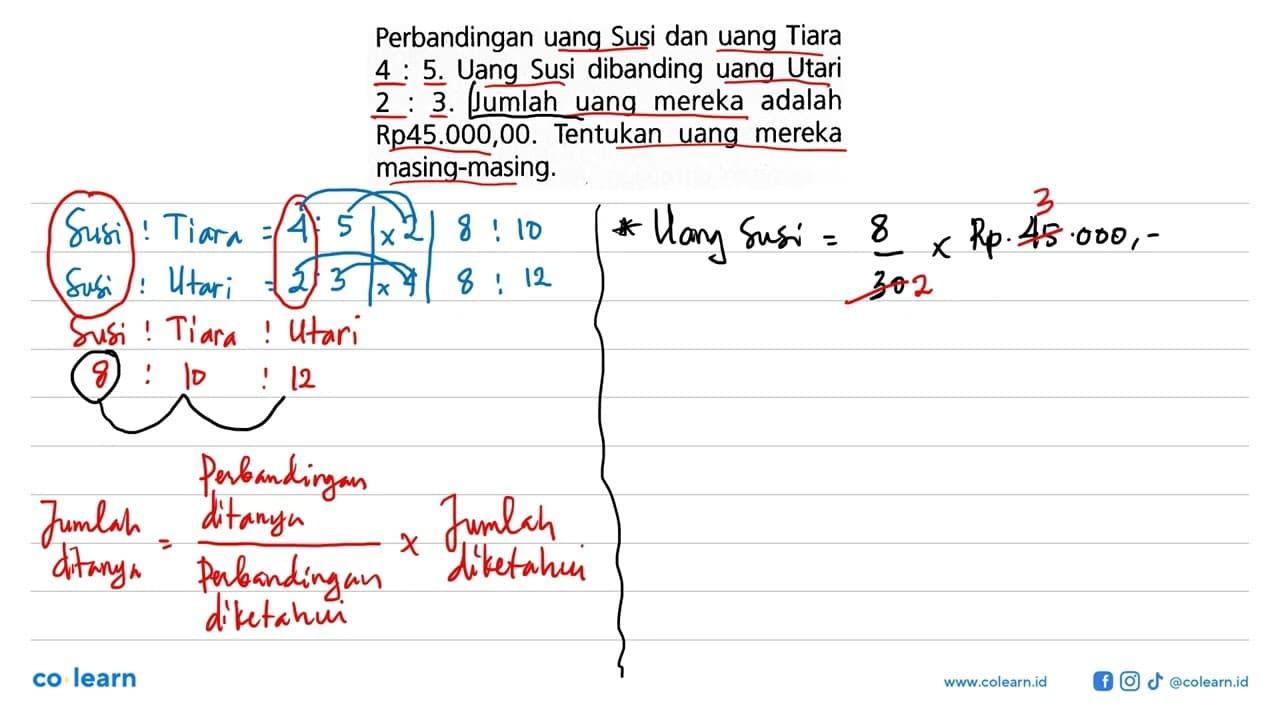 Perbandingan uang Susi dan uang Tiara
4 : 5. Uang Susi dibanding uang Utari
2 : 3. Jumlah uang mereka adalah
Rp45.000,00. Tentukan uang mereka
masing-masing.
Susi : Tiara = 4 : 5 | x 2 | 8 : 10
Susi : Utari = 2 : 3 | x 4 | 8 : 12
Susi : Tiara : Utari
8 : 10 : 12
Perbandingan
ditanya
Jumlah
ditanya = x Jumlah
diketahui
Perbandingan
diketahui
* Uang Susi = 8 x Rp. 45.000,-
3
30 2
co learn
www.colearn.id
@colearn.id